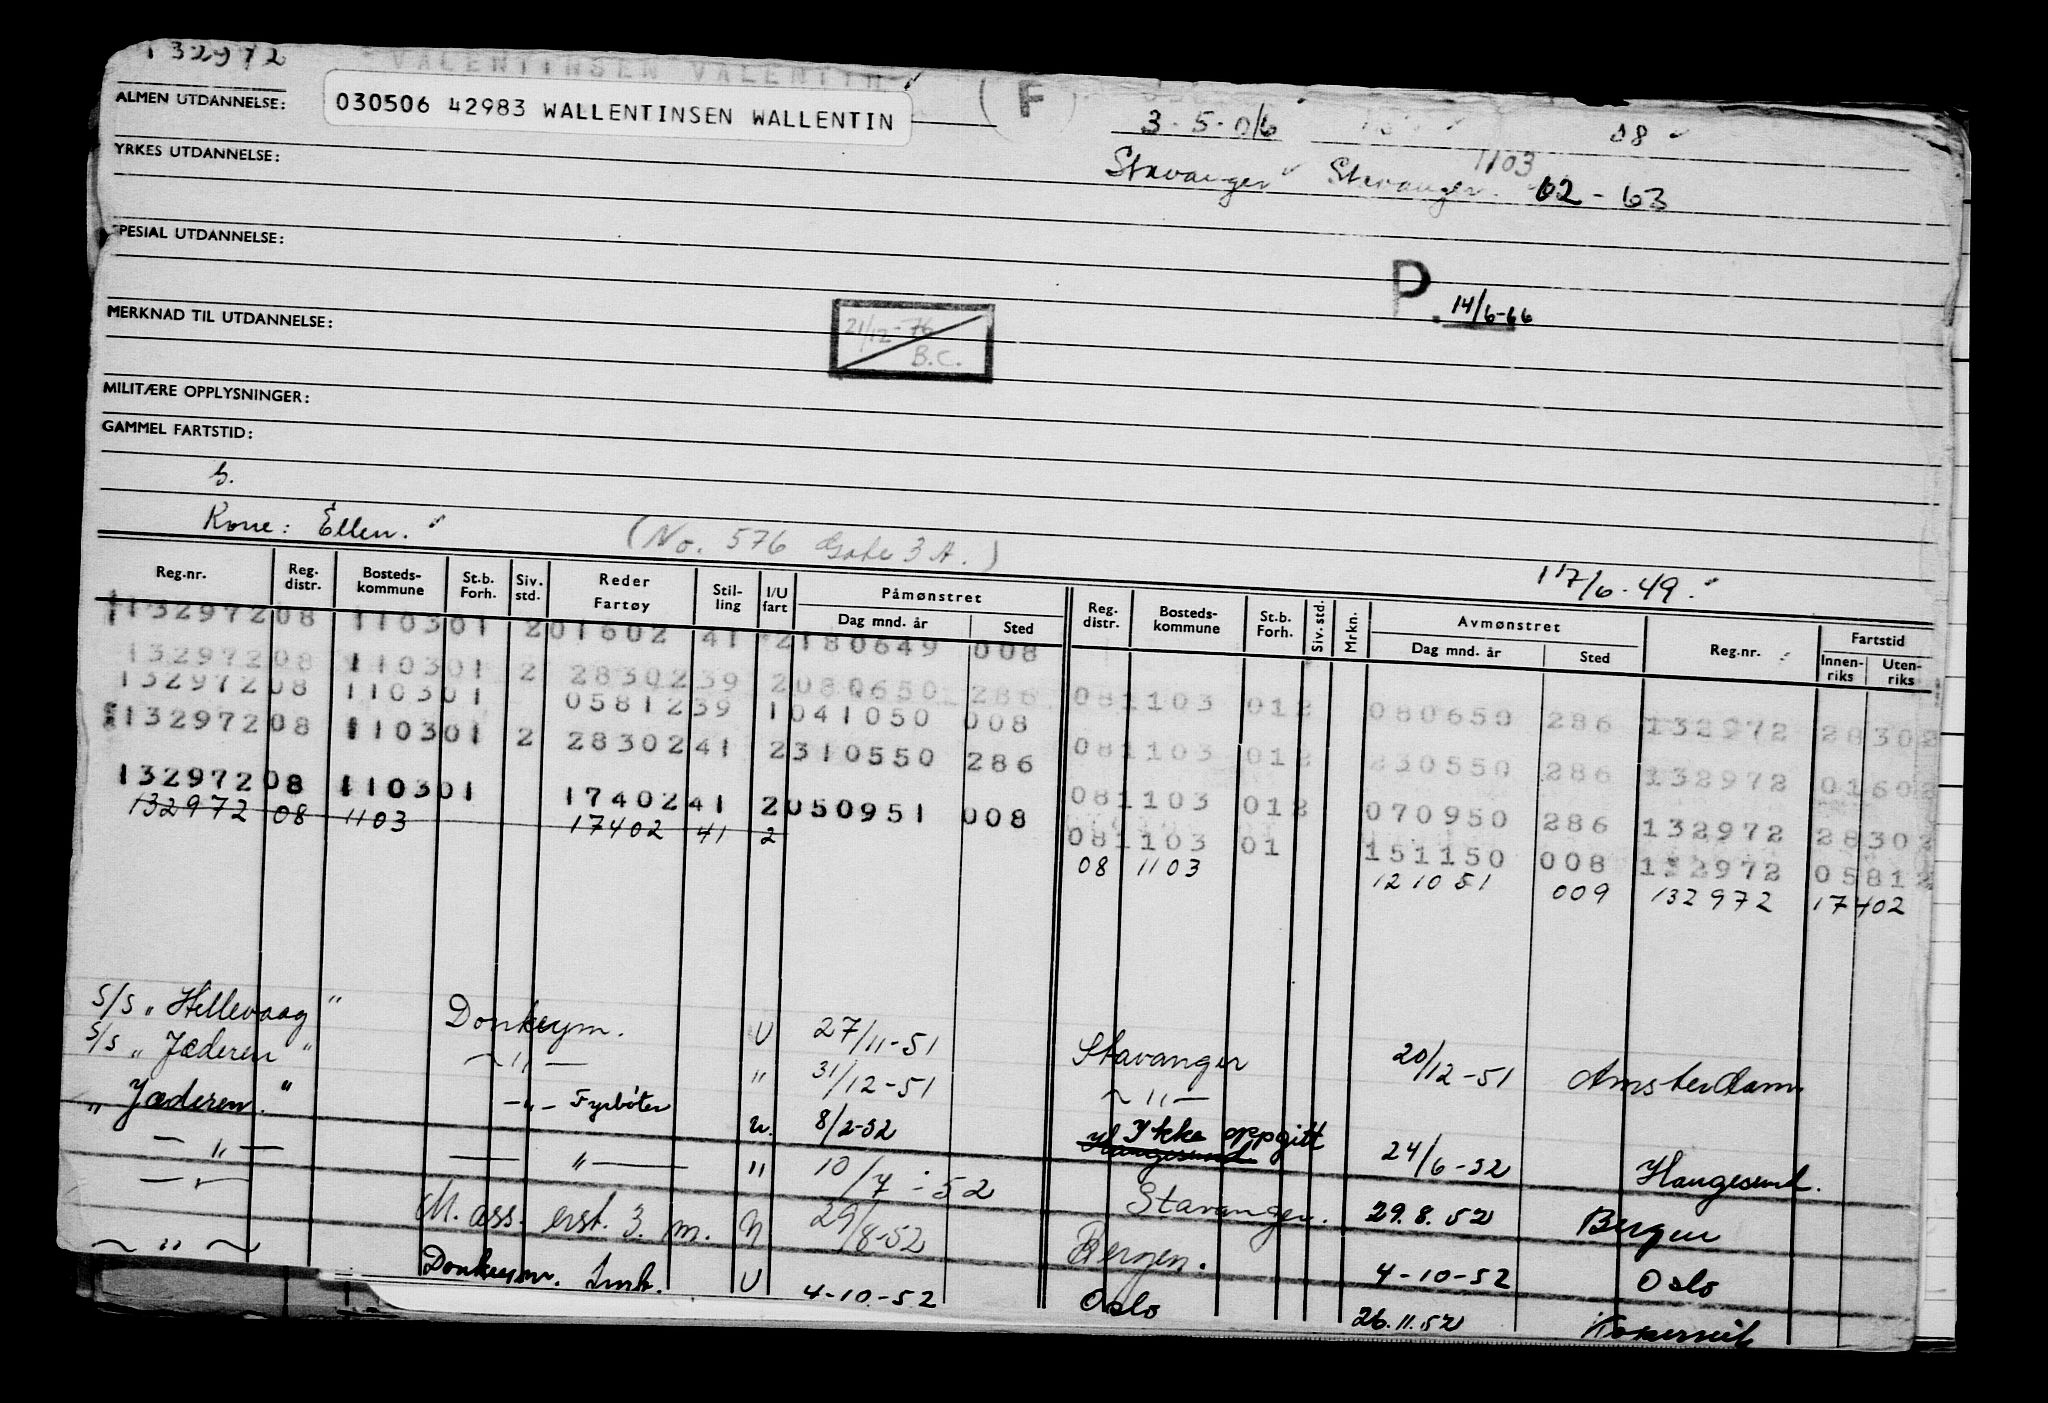 132972 VALENTINSEN VALENTIN
ALMEN UTDANNELSE:
030506 42983 WALLENTINSEN WALLENTIN
(F)
3-5-06 08
YRKES UTDANNELSE:
1103
Stavanger Stavanger. 02-63
SPESIAL UTDANNELSE:
P. 14/6-66
MERKNAD TIL UTDANNELSE:
21/12-76
B.C.
MILITÆRE OPPLYSNINGER:
GAMMEL FARTSTID:
Kone: Ellen.
(No. 576 Gate 3 A.)
17/6-49.
Reg.nr. Reg. distr. Bosteds-kommune St.b. Forh. Siv. std. Reder Fartøy Stil-ling I/U fart Påmønstret Dag mnd. år Sted Reg. distr. Bosteds-kommune St.b. Forh. Siv. std. Mrkn. Avmønstret Dag mnd. år Sted Reg.nr. Fartstid Innen-riks Uten-riks
132972 08 1103 01 2 01602 41 2 180649 008
132972 08 1103 01 2 28302 39 2 080650 286 08 1103 01 2 080650 286 132972 28302
132972 08 1103 01 05812 39 1 041050 008
132972 08 1103 01 2 28302 41 2 310550 286 08 1103 01 2 230550 286 132972 01602
132972 08 1103 01 17402 41 2 050951 008 08 1103 01 2 070950 286 132972 28302
132972 08 1103 17402 41 2 08 1103 01 151150 008 132972 05812
08 1103 121051 009 132972 17402
S/S "Hellevaag" Donkeym. U 27/11-51 Stavanger 20/12-51 Amsterdam
S/S "Jæderen" — " — " 31/12-51 — " —
"Jæderen." — " — Fyrbøter u. 8/2-52 Haugesund Ikke oppgitt 24/6-52 Haugesund.
— " — — " — " 10/7-52 Stavanger. 29.8.52 Bergen
— " — M. ass. erst. 3. m. U 29/8-52 Bergen. 4-10-52 Oslo
— " — Donkeym. U 4-10-52 Oslo 26.11.52